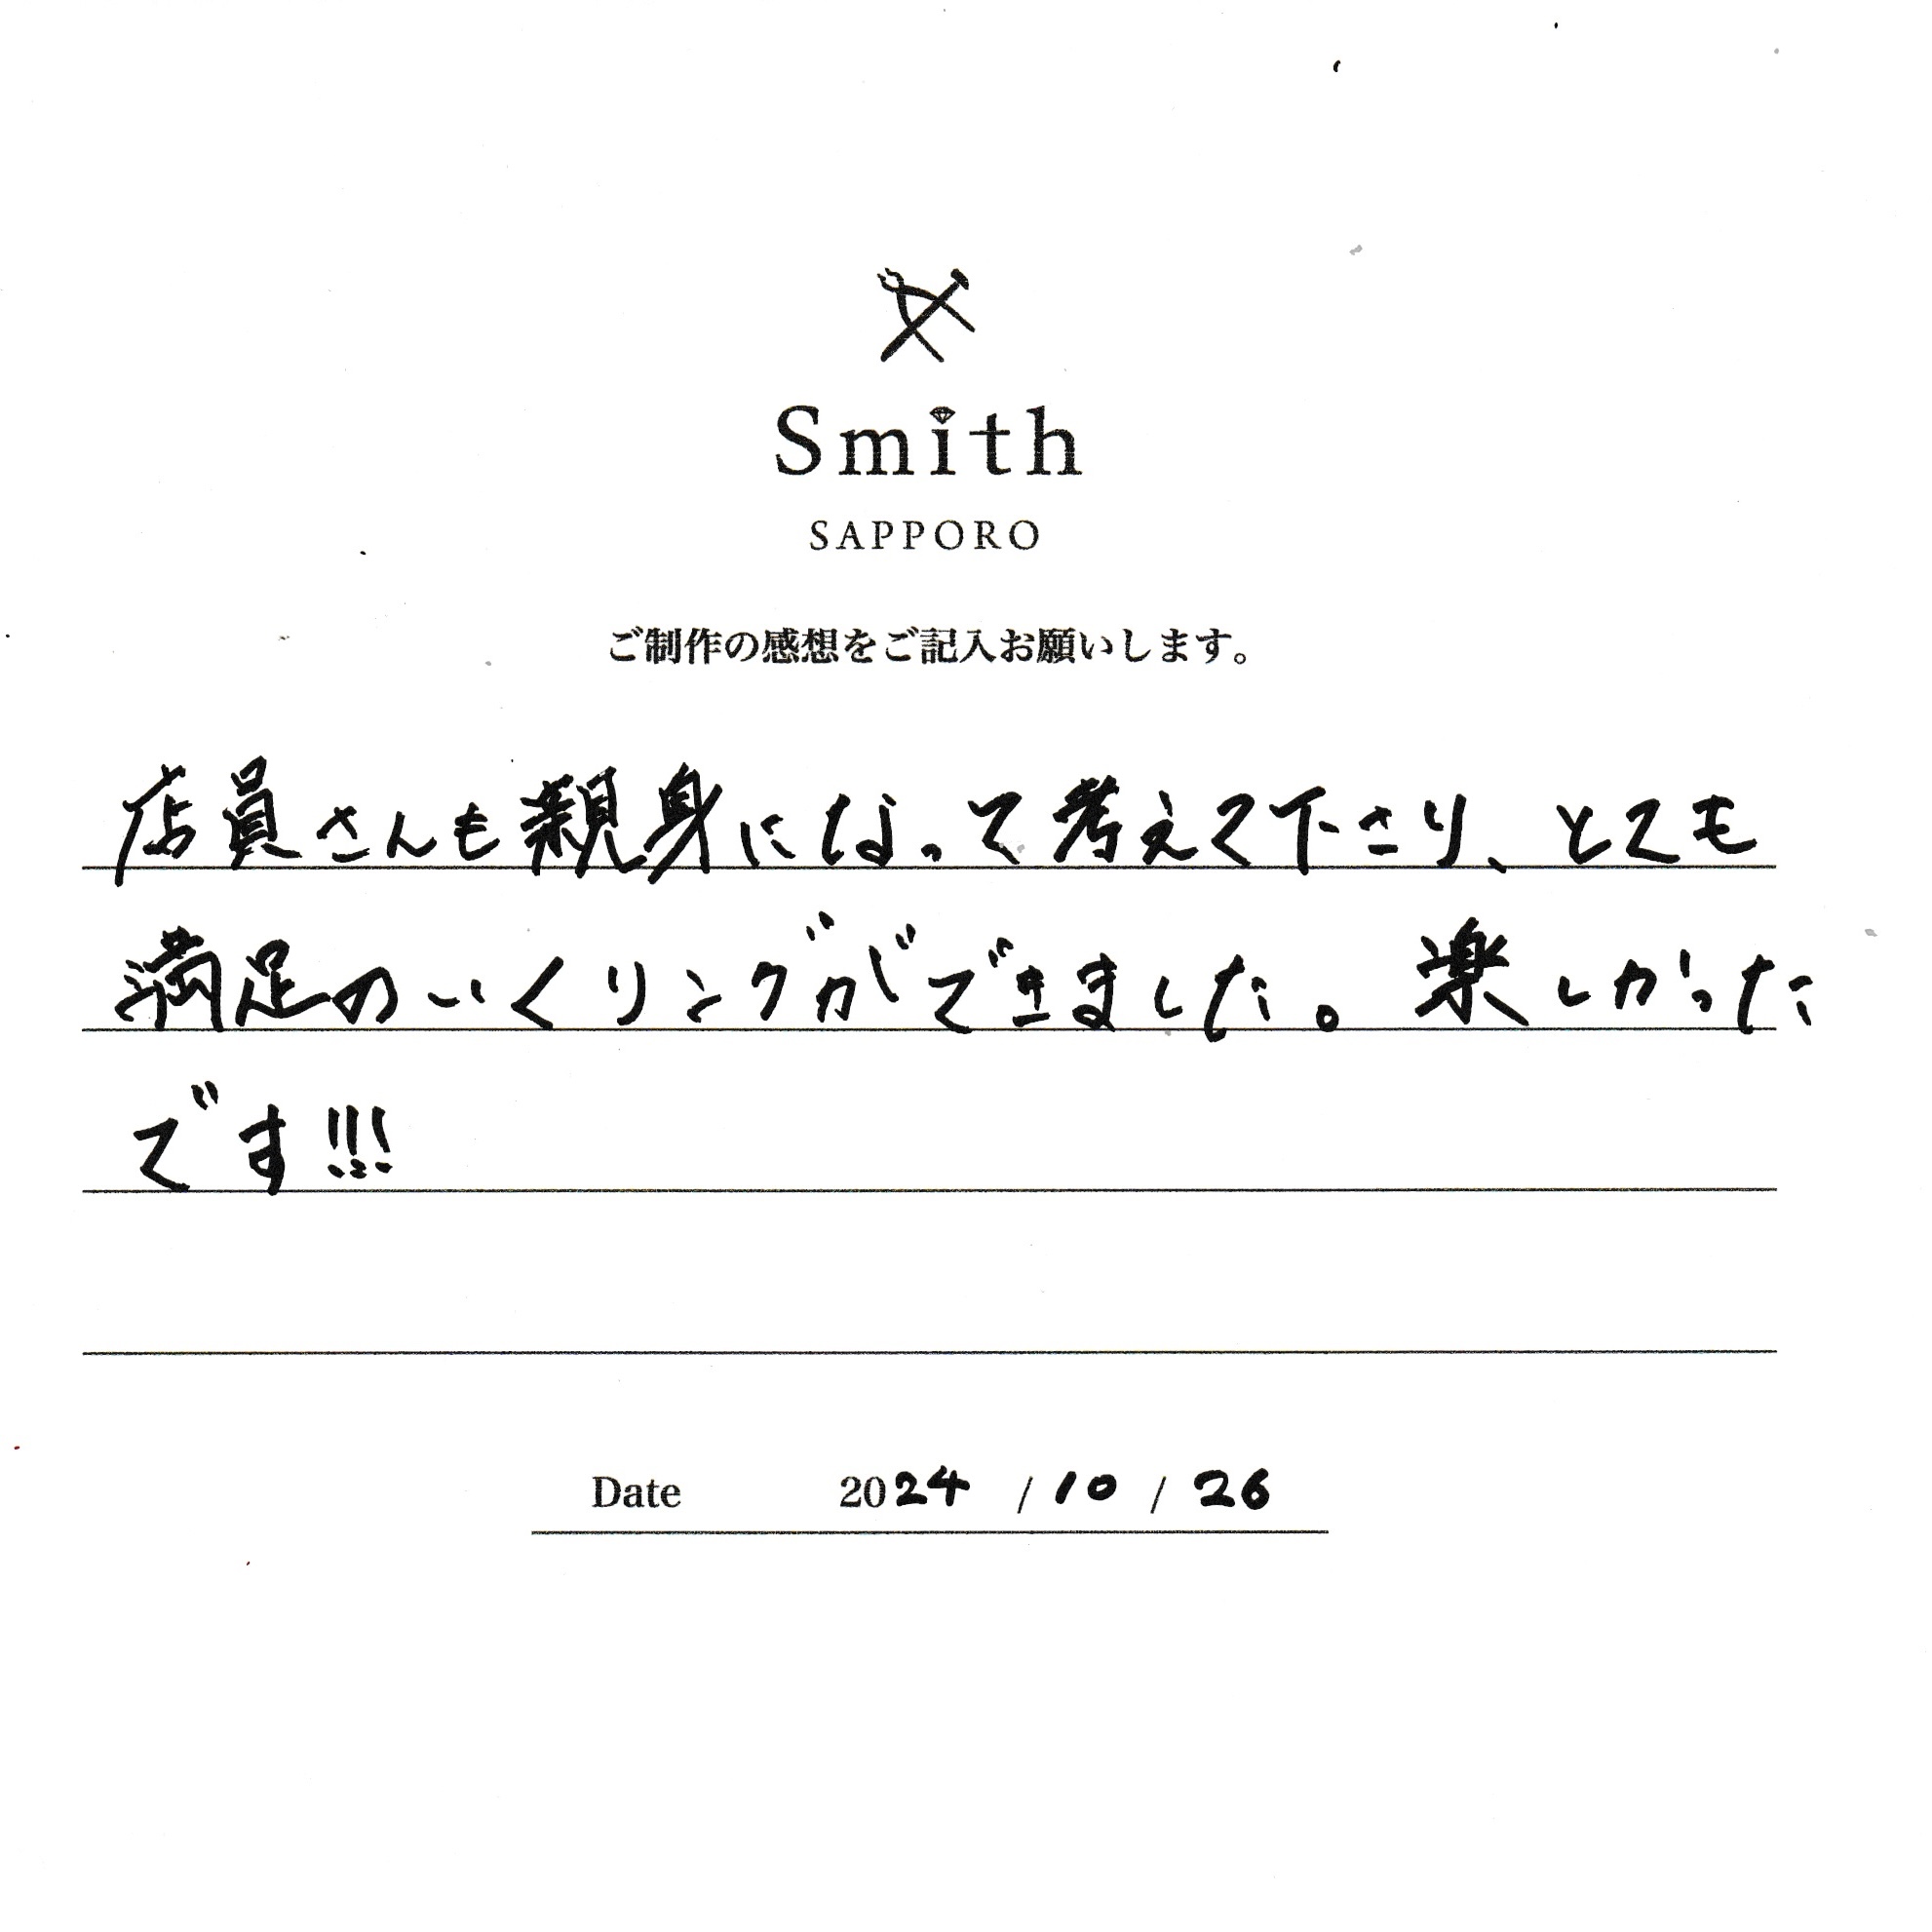 Smith
SAPPORO
ご制作の感想をご記入お願いします。
店員さんも親身になって考えて下さり、とても
満足のいくリングができました。楽しかった
です!!!
Date 2024 / 10 / 26